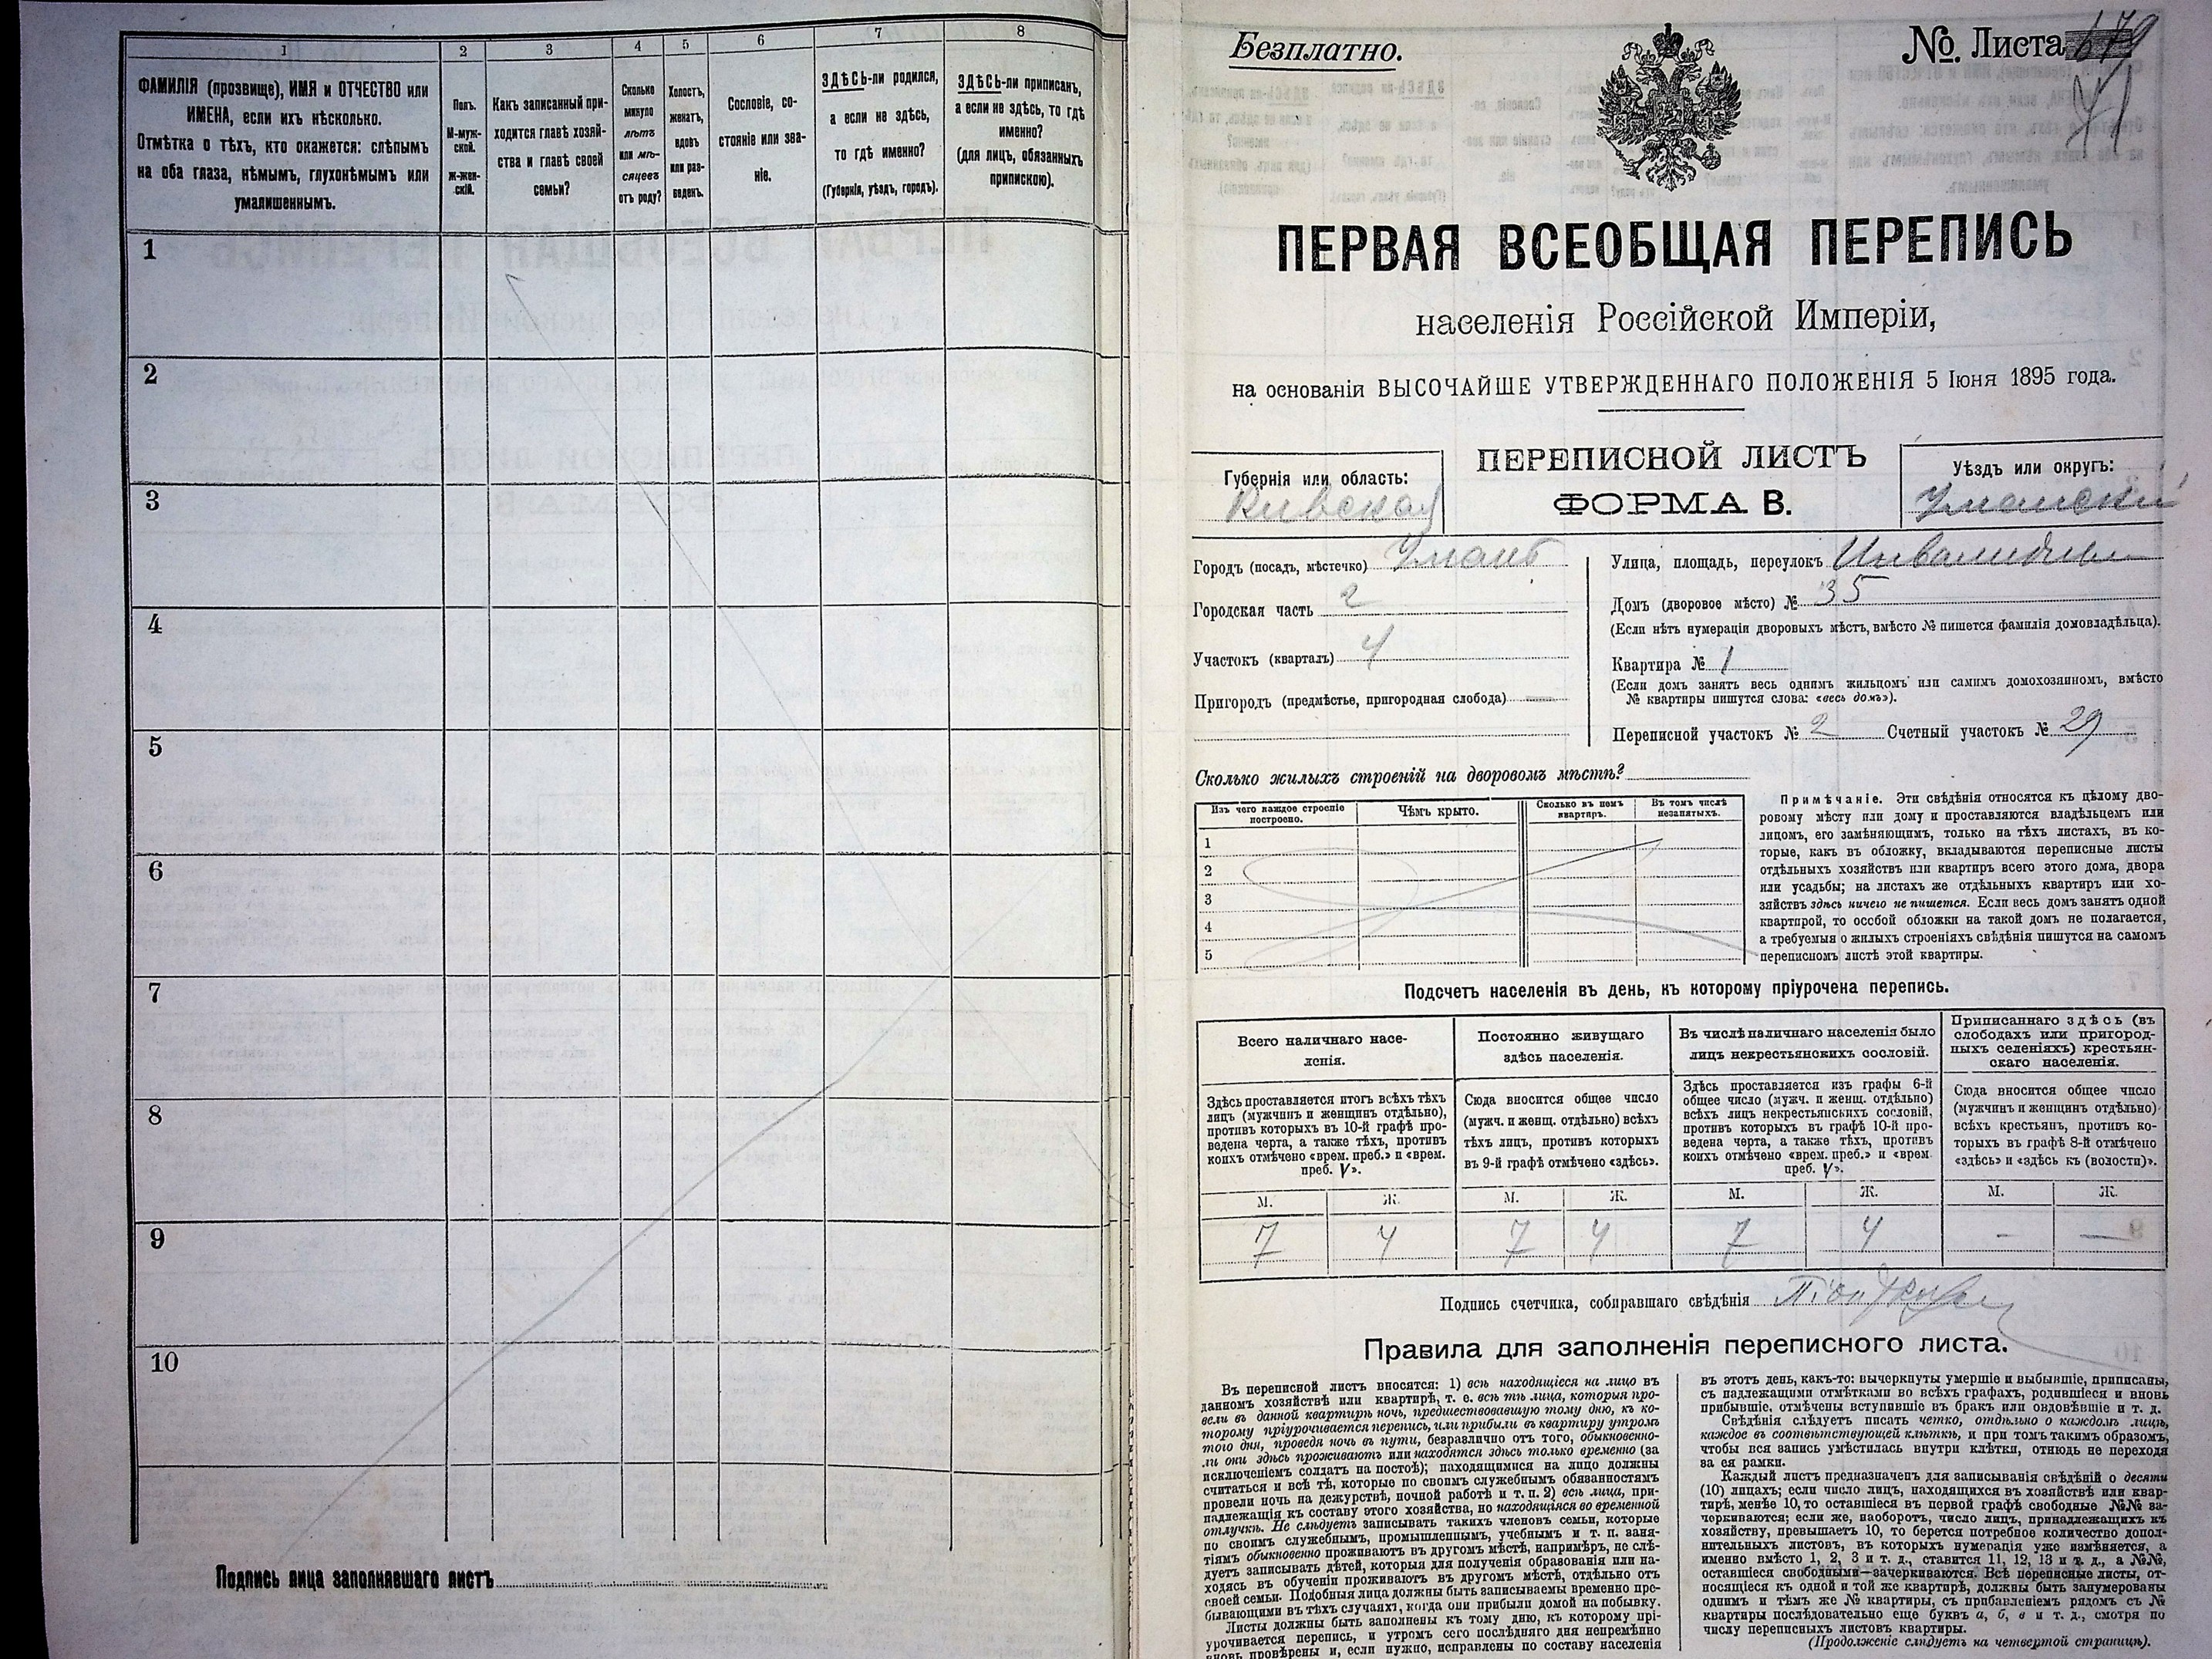 1
2
3
4
5
6
7
8
ФАМИЛІЯ (прозвище), ИМЯ и ОТЧЕСТВО или
ИМЕНА, если ихъ нѣсколько.
Отмѣтка о тѣхъ, кто окажется: слѣпымъ
на оба глаза, нѣмымъ, глухонѣмымъ или
умалишеннымъ.
Полъ.
М-муж-
ской.
Ж-жен-
скій.
Какъ записанный при-
ходится главѣ хозяй-
ства и главѣ своей
семьи?
Сколько
минуло
лѣтъ
или мѣ-
сяцевъ
отъ роду?
Холостъ,
женатъ,
вдовъ
или раз-
веденъ.
Сословіе, со-
стояніе или зва-
ніе.
ЗДѢСЬ-ли родился,
а если не здѣсь,
то гдѣ именно?
(Губернія, уѣздъ, городъ).
ЗДѢСЬ-ли приписанъ,
а если не здѣсь, то гдѣ
именно?
(для лицъ, обязанныхъ
припискою).
1
2
3
4
5
6
7
8
9
10
Подпись лица заполнявшаго листъ
Безплатно.
№ Листа 679
41
ПЕРВАЯ ВСЕОБЩАЯ ПЕРЕПИСЬ
населенія Россійской Имперіи,
на основаніи ВЫСОЧАЙШЕ УТВЕРЖДЕННАГО ПОЛОЖЕНІЯ 5 Іюня 1895 года.
Губернія или область:
Кивская
ПЕРЕПИСНОЙ ЛИСТЪ
ФОРМА В.
Уѣздъ или округъ:
Уманскій
Городъ (посадъ, мѣстечко) Умань
Городская часть 2
Участокъ (кварталъ) 4
Пригородъ (предмѣстье, пригородная слобода) —
Улица, площадь, переулокъ
Домъ (дворовое мѣсто) № 35
(Если нѣтъ нумераціи дворовыхъ мѣстъ, вмѣсто № пишется фамилія домовладѣльца).
Квартира № 1
(Если домъ занятъ весь однимъ жильцомъ или самимъ домохозяиномъ, вмѣсто
№ квартиры пишутся слова: «весь домъ»).
Переписной участокъ № 2 Счетный участокъ № 29
Сколько жилыхъ строеній на дворовомъ мѣстѣ?
Изъ чего каждое строеніе
построено.
Чѣмъ крыто.
Сколько въ немъ
квартиръ.
Въ томъ числѣ
незанятыхъ.
1
2
3
4
5
Примѣчаніе. Эти свѣдѣнія относятся къ цѣлому дво-
ровому мѣсту или дому и проставляются владѣльцемъ или
лицомъ, его замѣняющимъ, только на тѣхъ листахъ, въ ко-
торые, какъ въ обложку, вкладываются переписные листы
отдѣльныхъ хозяйствъ или квартиръ всего этого дома, двора
или усадьбы; на листахъ же отдѣльныхъ квартиръ или хо-
зяйствъ здѣсь ничего не пишется. Если весь домъ занятъ одной
квартирой, то особой обложки на такой домъ не полагается,
а требуемыя о жилыхъ строеніяхъ свѣдѣнія пишутся на самомъ
переписномъ листѣ этой квартиры.
Подсчетъ населенія въ день, къ которому пріурочена перепись.
Всего наличнаго насе-
ленія.
Здѣсь проставляется итогъ всѣхъ тѣхъ
лицъ (мужчинъ и женщинъ отдѣльно),
противъ которыхъ въ 10-й графѣ про-
ведена черта, а также тѣхъ, противъ
коихъ отмѣчено «врем. преб.» и «врем.
преб. V».
Постоянно живущаго
здѣсь населенія.
Сюда вносится общее число
(мужч. и женщ. отдѣльно) всѣхъ
тѣхъ лицъ, противъ которыхъ
въ 9-й графѣ отмѣчено «здѣсь».
Въ числѣ наличнаго населенія было
лицъ некрестьянскихъ сословій.
Здѣсь проставляется изъ графы 6-й
общее число (мужч. и женщ. отдѣльно)
всѣхъ лицъ некрестьянскихъ сословій,
противъ которыхъ въ графѣ 10-й про-
ведена черта, а также тѣхъ, противъ
коихъ отмѣчено «врем. преб.» и «врем
преб. V».
Приписаннаго здѣсь (въ
слободахъ или пригород-
ныхъ селеніяхъ) крестьян-
скаго населенія.
Сюда вносится общее число
(мужчинъ и женщинъ отдѣльно)
всѣхъ крестьянъ, противъ ко-
торыхъ въ графѣ 8-й отмѣчено
«здѣсь» и «здѣсь къ (волости)».
М. Ж. М. Ж. М. Ж. М. Ж.
7 4 7 4 7 4 - —
Подпись счетчика, собиравшаго свѣдѣнія
Правила для заполненія переписного листа.
Въ переписной листъ вносятся: 1) всѣ находящіеся на лицо въ
данномъ хозяйствѣ или квартирѣ, т. е. всѣ тѣ лица, которыя про-
вели въ данной квартирѣ ночь, предшествовавшую тому дню, къ ко-
торому пріурочивается перепись, или прибыли въ квартиру утромъ
того дня, проведя ночь въ пути, безразлично отъ того, обыкновенно-
ли они здѣсь проживаютъ или находятся здѣсь только временно (за
исключеніемъ солдатъ на постоѣ); находящимися на лицо должны
считаться и всѣ тѣ, которые по своимъ служебнымъ обязанностямъ
провели ночь на дежурствѣ, ночной работѣ и т. п. 2) всѣ лица, при-
надлежащія къ составу этого хозяйства, но находящіяся во временной
отлучкѣ. Не слѣдуетъ записывать такихъ членовъ семьи, которые
по своимъ служебнымъ, промышленнымъ, учебнымъ и т. п. заня-
тіямъ обыкновенно проживаютъ въ другомъ мѣстѣ, напримѣръ, не слѣ-
дуетъ записывать дѣтей, которыя для полученія образованія или на-
ходясь въ обученіи проживаютъ въ другомъ мѣстѣ, отдѣльно отъ
своей семьи. Подобныя лица должны быть записываемы временно пре-
бывающими въ тѣхъ случаяхъ, когда они прибыли домой на побывку.
Листы должны быть заполнены къ тому дню, къ которому прі-
урочивается перепись, и утромъ сего послѣдняго дня непремѣнно
вновь провѣрены и, если нужно, исправлены по составу населенія
въ этотъ день, какъ-то: вычеркнуты умершіе и выбывшіе, приписаны,
съ надлежащими отмѣтками во всѣхъ графахъ, родившіеся и вновь
прибывшіе, отмѣчены вступившіе въ бракъ или овдовѣвшіе и т. д.
Свѣдѣнія слѣдуетъ писать четко, отдѣльно о каждомъ лицѣ,
каждое въ соотвѣтствующей клѣткѣ, и при томъ такимъ образомъ,
чтобы вся запись умѣстилась внутри клѣтки, отнюдь не переходя
за ея рамки.
Каждый листъ предназначенъ для записыванія свѣдѣній о десяти
(10) лицахъ; если число лицъ, находящихся въ хозяйствѣ или квар-
тирѣ, менѣе 10, то оставшіеся въ первой графѣ свободные №№ за-
черкиваются; если же, наоборотъ, число лицъ, принадлежащихъ къ
хозяйству, превышаетъ 10, то берется потребное количество допол-
нительныхъ листовъ, въ которыхъ нумерація уже измѣняется, а
именно вмѣсто 1, 2, 3 и т. д., ставится 11, 12, 13 и т. д., а №№,
оставшіеся свободными—зачеркиваются. Всѣ переписные листы, от-
носящіеся къ одной и той же квартирѣ, должны быть занумерованы
однимъ и тѣмъ же № квартиры, съ прибавленіемъ рядомъ съ №
квартиры послѣдовательно еще буквъ а, б, в и т. д., смотря по
числу переписныхъ листовъ квартиры.
(Продолженіе слѣдуетъ на четвертой страницѣ).